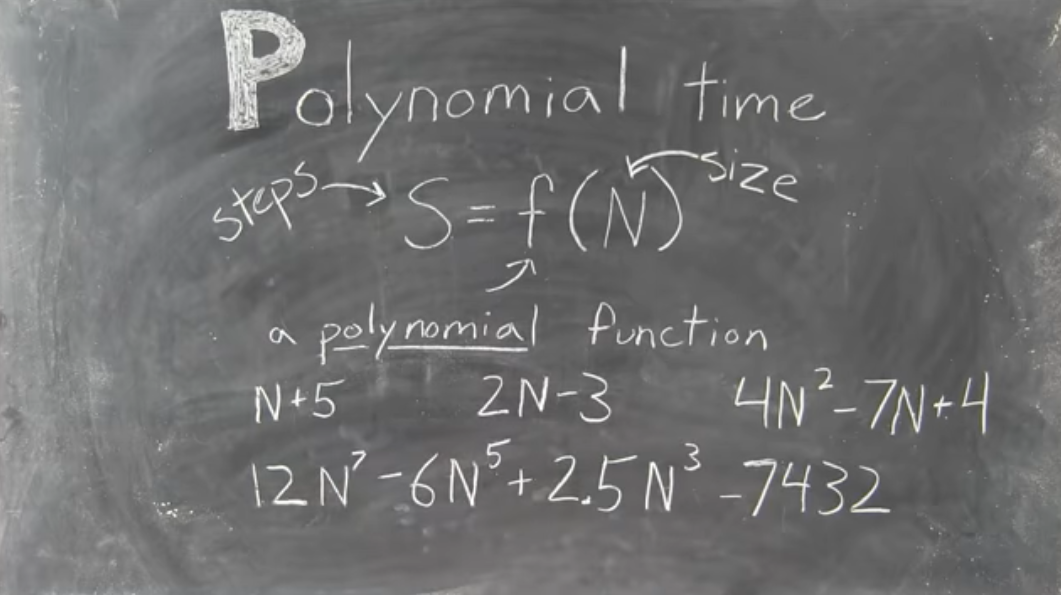 Polynomial time
steps → S = f(N) size
a polynomial function
N+5 2N-3 4N²-7N+4
12N⁷-6N⁵+2.5N³-7432